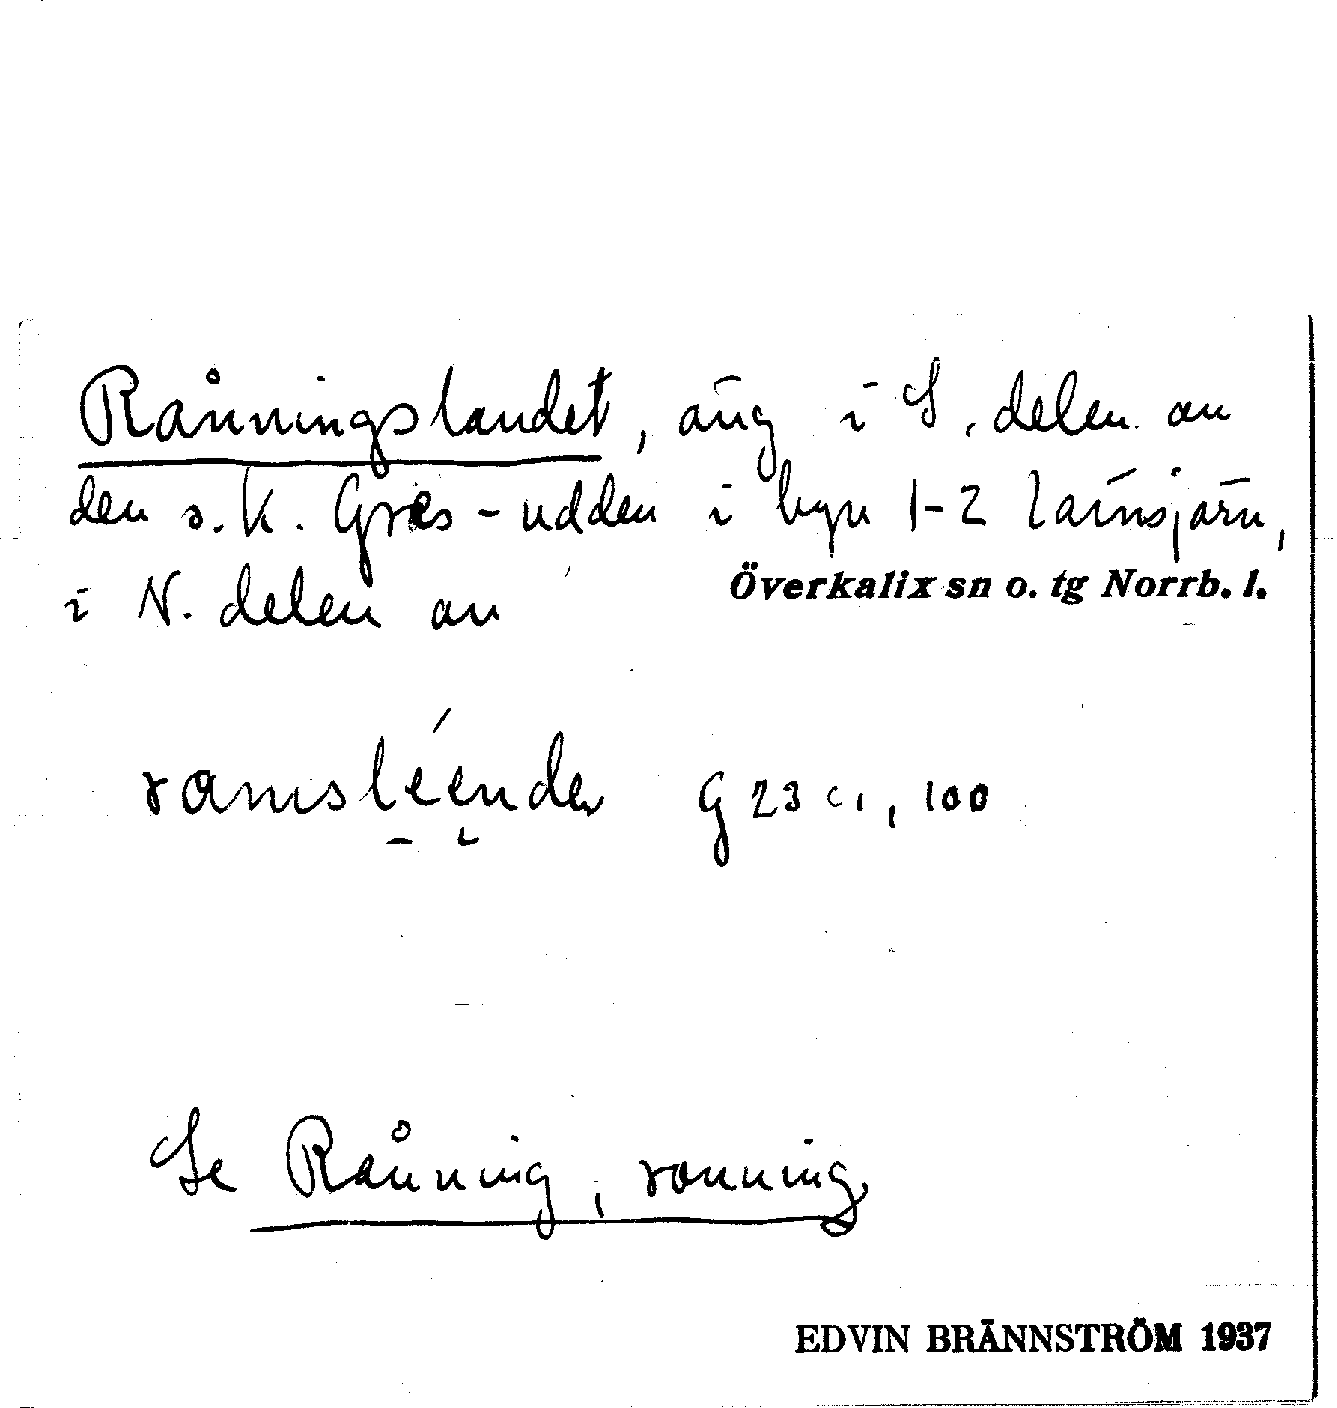 Rånningslandet, äng i S. delen av
den s.k. Gräs-udden i byn 1-2 Lansjärv,
i N. delen av
Överkalix sn o. tg Norrb. l.
G 23 c1, 100
Se Rånning, rånning
EDVIN BRÄNNSTRÖM 1937